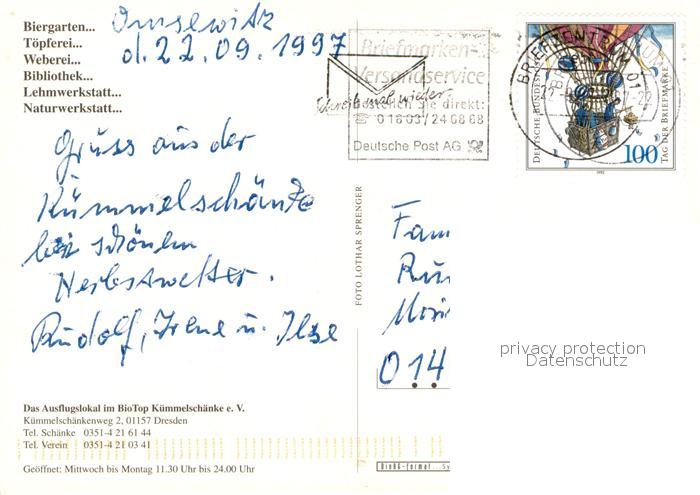 Biergarten...
Töpferei...
Weberei...
Bibliothek...
Lehmwerkstatt...
Naturwerkstatt...
Omsewitz
d. 22.09.1997
Briefmarken-
Versandservice
Bestellen Sie direkt:
☎ 0 18 03 / 24 68 68
Deutsche Post AG
Schreib mal wieder
BRIEFZENTRUM 01
DEUTSCHE BUNDESPOST
TAG DER BRIEFMARKE
100
1992
Gruss aus der
Kümmelschänke
bei schönem
Herbstwetter.
Rudolf, Irene u. Ilse
FOTO LOTHAR SPRENGER
Fam
014
privacy protection
Datenschutz
Das Ausflugslokal im BioTop Kümmelschänke e. V.
Kümmelschänkenweg 2, 01157 Dresden
Tel. Schänke 0351-4 21 61 44
Tel. Verein 0351-4 21 03 41
Geöffnet: Mittwoch bis Montag 11.30 Uhr bis 24.00 Uhr